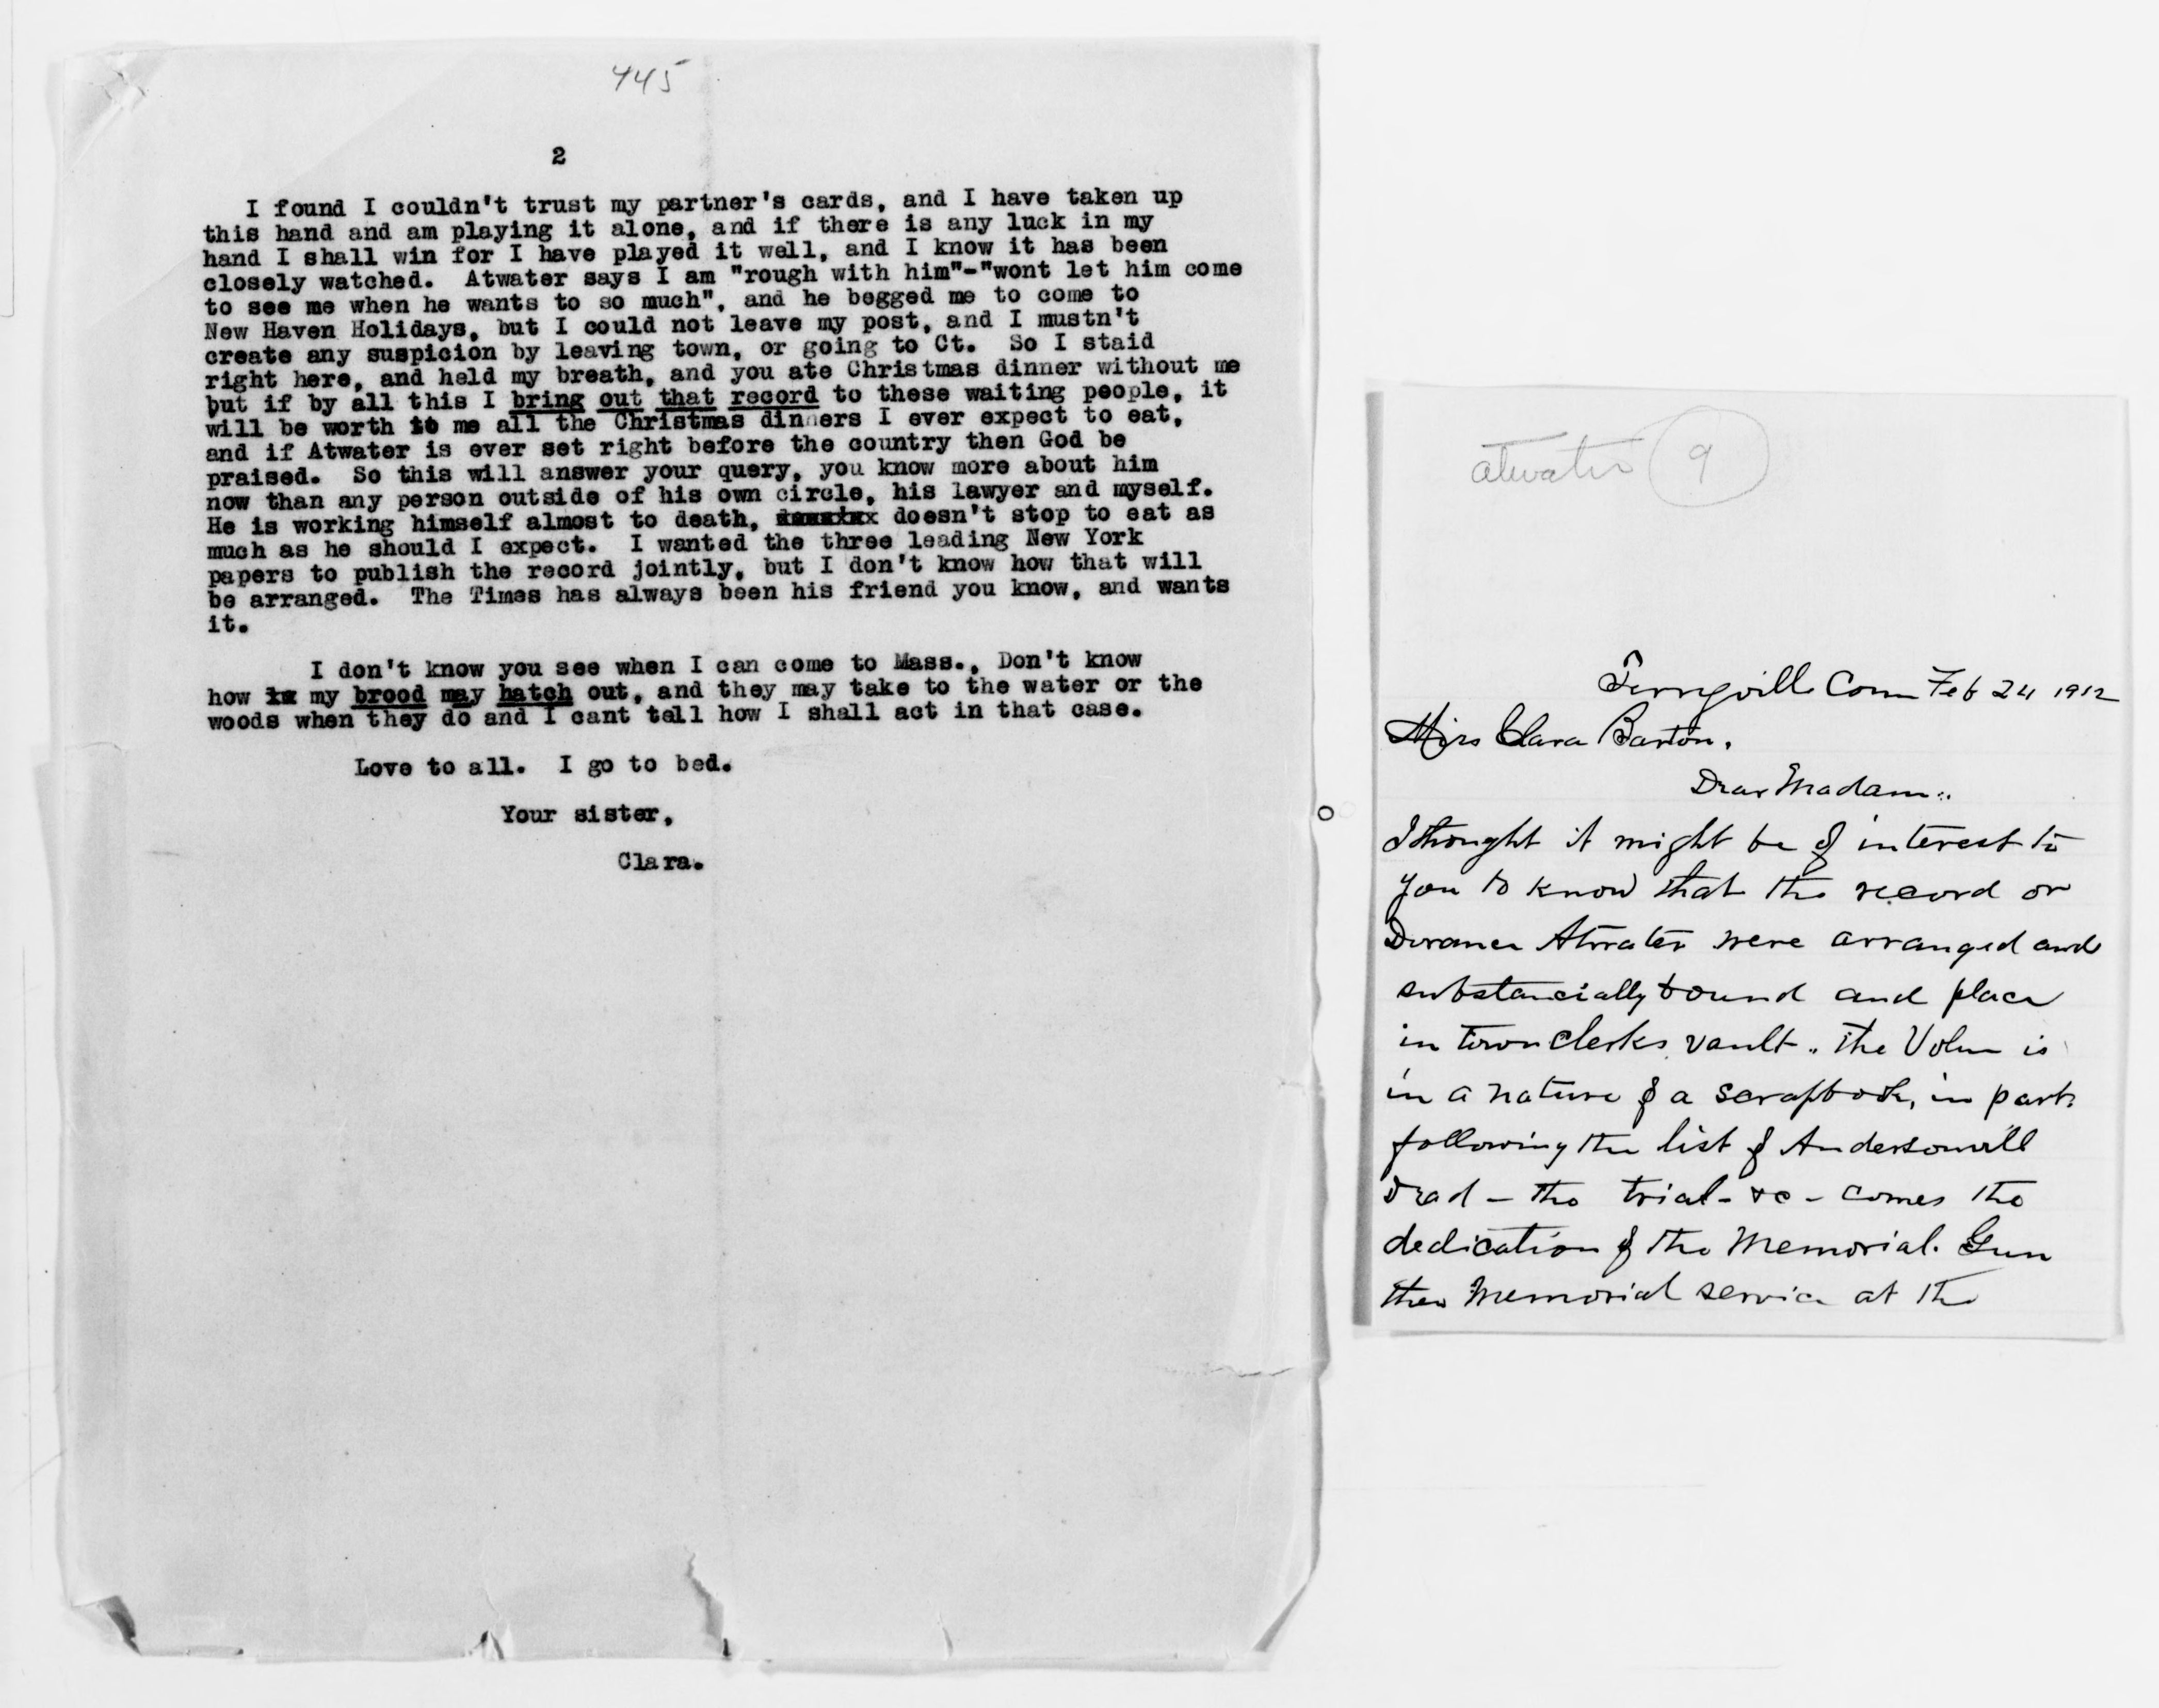 445
2
I found I couldn't trust my partner's cards, and I have taken up
this hand and am playing it alone, and if there is any luck in my
hand I shall win for I have played it well, and I know it has been
closely watched. Atwater says I am "rough with him"-"wont let him come
to see me when he wants to so much", and he begged me to come to
New Haven Holidays, but I could not leave my post, and I mustn't
create any suspicion by leaving town, or going to Ct. So I staid
right here, and held my breath, and you ate Christmas dinner without me
but if by all this I bring out that record to these waiting people, it
will be worth to me all the Christmas dinners I ever expect to eat,
and if Atwater is ever set right before the country then God be
praised. So this will answer your query, you know more about him
now than any person outside of his own circle, his lawyer and myself.
He is working himself almost to death, doesn't stop to eat as
much as he should I expect. I wanted the three leading New York
papers to publish the record jointly, but I don't know how that will
be arranged. The Times has always been his friend you know, and wants
it.
I don't know you see when I can come to Mass., Don't know
how my brood may hatch out, and they may take to the water or the
woods when they do and I cant tell how I shall act in that case.
Love to all. I go to bed.
Your sister,
Clara.
atwater 9
Terryville Conn Feb 24 1912
Miss Clara Barton.
Dear Madam..
I thought it might be of interest to
you to know that the record or
Atwater were arranged and
substancially bound and place
in town clerks vault. The Volum is
in a nature of a scrapbook, in part.
following the list of Andersonvill
Dead - the trial - &c - comes the
dedication of the Memorial. Gun
then Memorial service at the